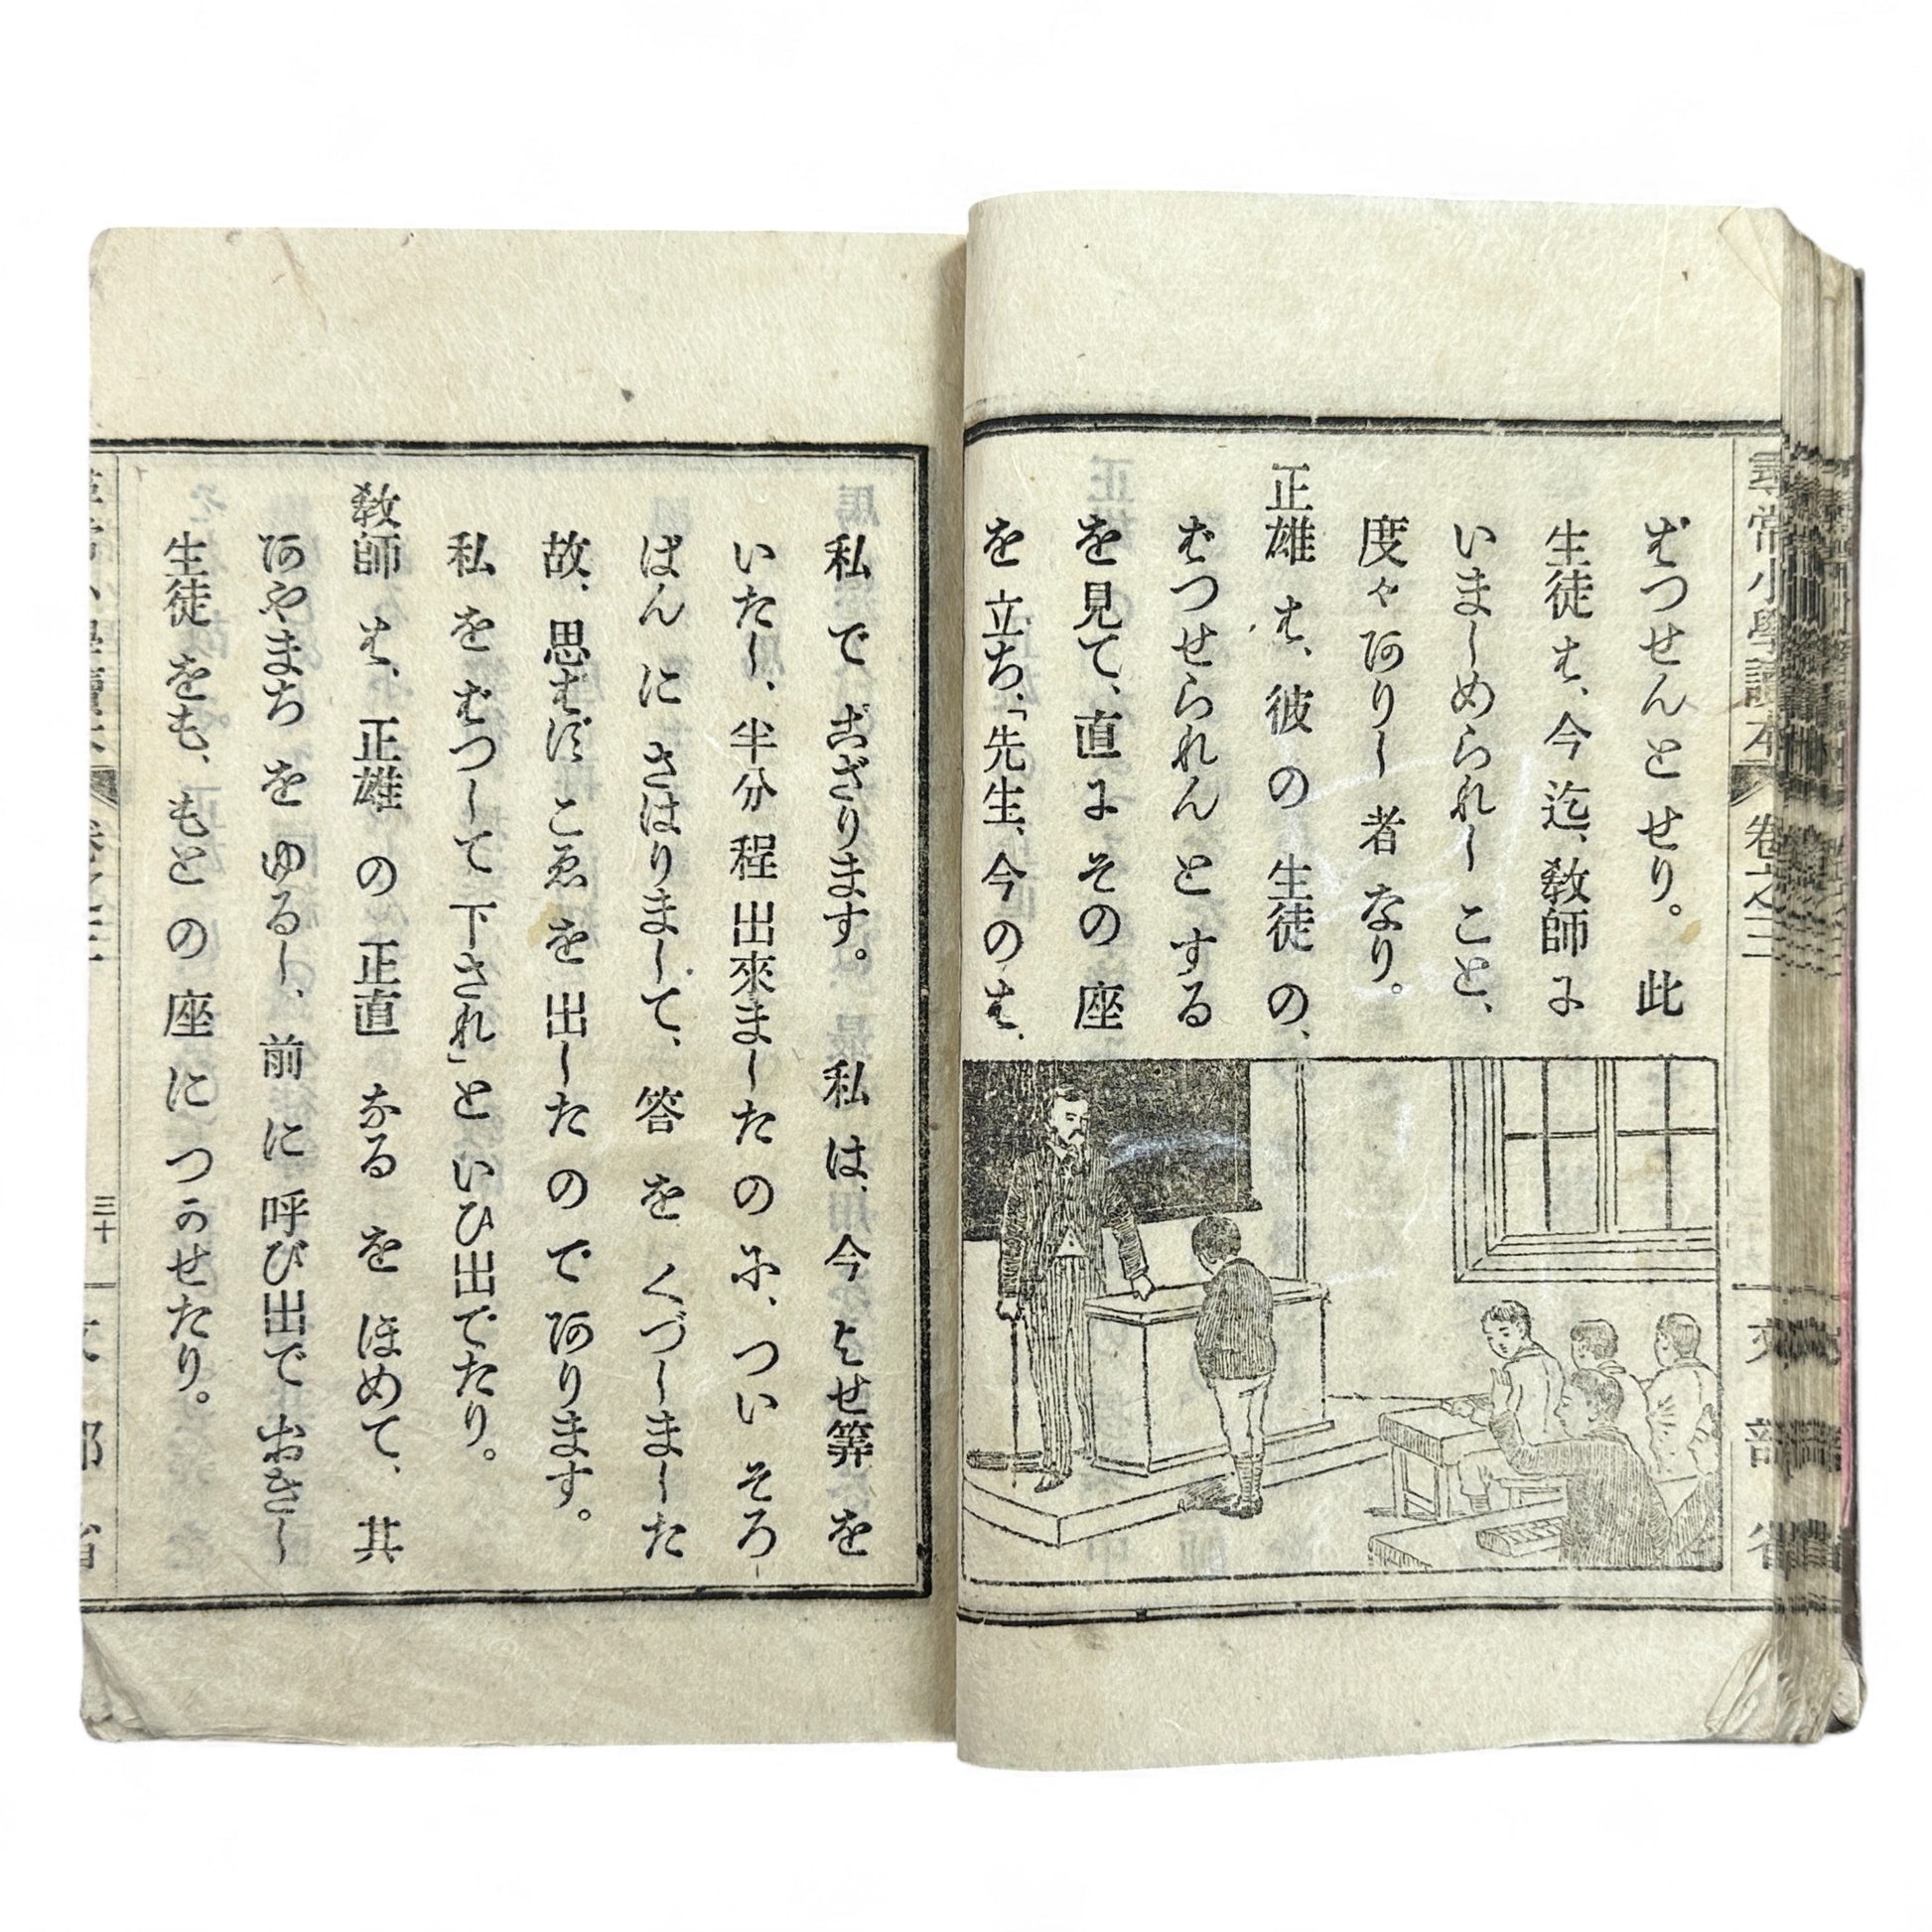 尋常小學讀本 卷之三 文部省
ばつせんとせり。此
生徒は、今迄、敎師に
いましめられしこと、
度々ありし者なり。
正雄は、彼の生徒の、
ばつせられんとする
を見て、直にその座
を立ち、「先生、今のは、
私でござります。私は、今よせ筭を
いたし、半分程出來ましたのに、ついそろ
ばんにさはりまして、答をくづしました
故、思はずこゑを出したのであります。
私をばつして下され」といひ出でたり。
敎師は、正雄の正直なるをほめて、其
あやまちをゆるし、前に呼び出でおきし
生徒をも、もとの座につかせたり。
三十